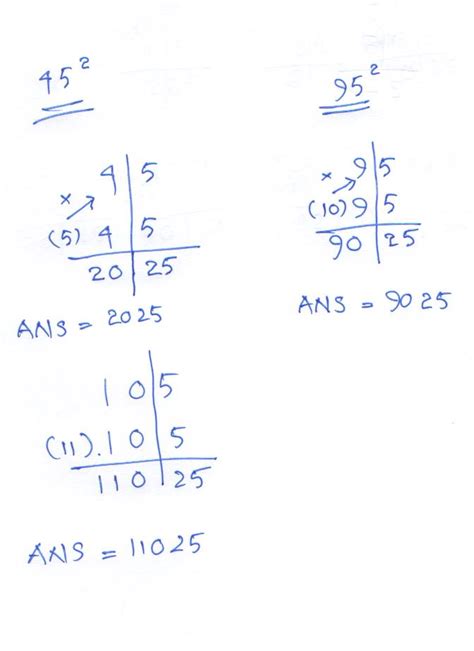 45²
4|5
×
(5) 4|5
20|25
ANS = 2025
95²
× 9|5
(10) 9|5
90|25
ANS = 9025
10|5
(11).10|5
110|25
ANS = 11025